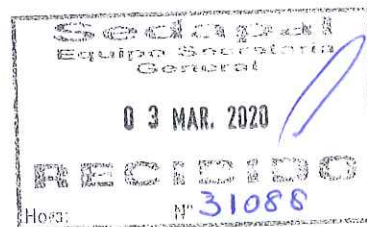 Sedapal
Equipo Secretaria
General
03 MAR. 2020
RECIBIDO
Hora: N° 31088